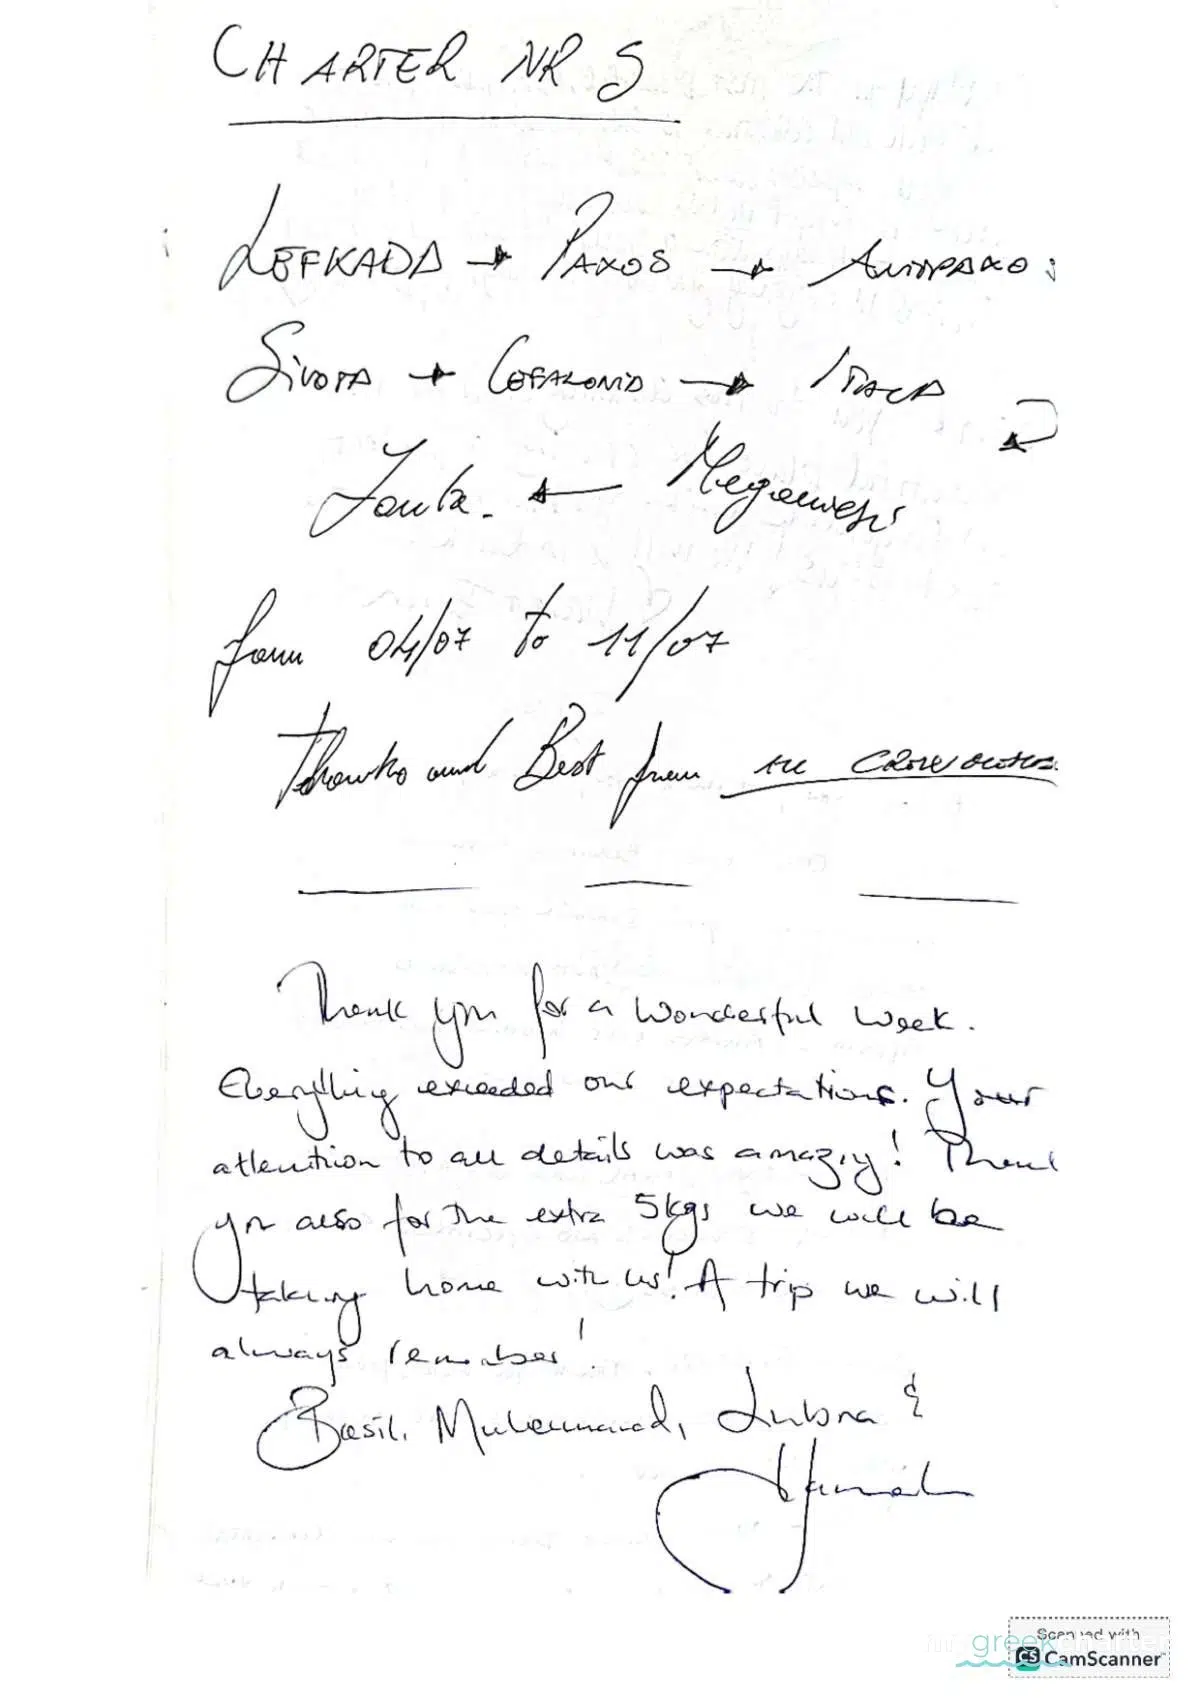 CHARTER NR 5
LEFKADA → PAXOS → ANTIPAXO:
SIVOTA → CEFALONIA → ITACA
Meganissi
← 
from 04/07 to 11/07
Thanks and Best from
Thank you for a wonderful week.
Everything exceeded our expectations. Your
attention to all details was amazing! Thank
you also for the extra 5kgs we will be
taking home with us! A trip we will
always remember!
Basil, Muhammad, Lubna &
Scanned with
greekcharter
CS CamScanner